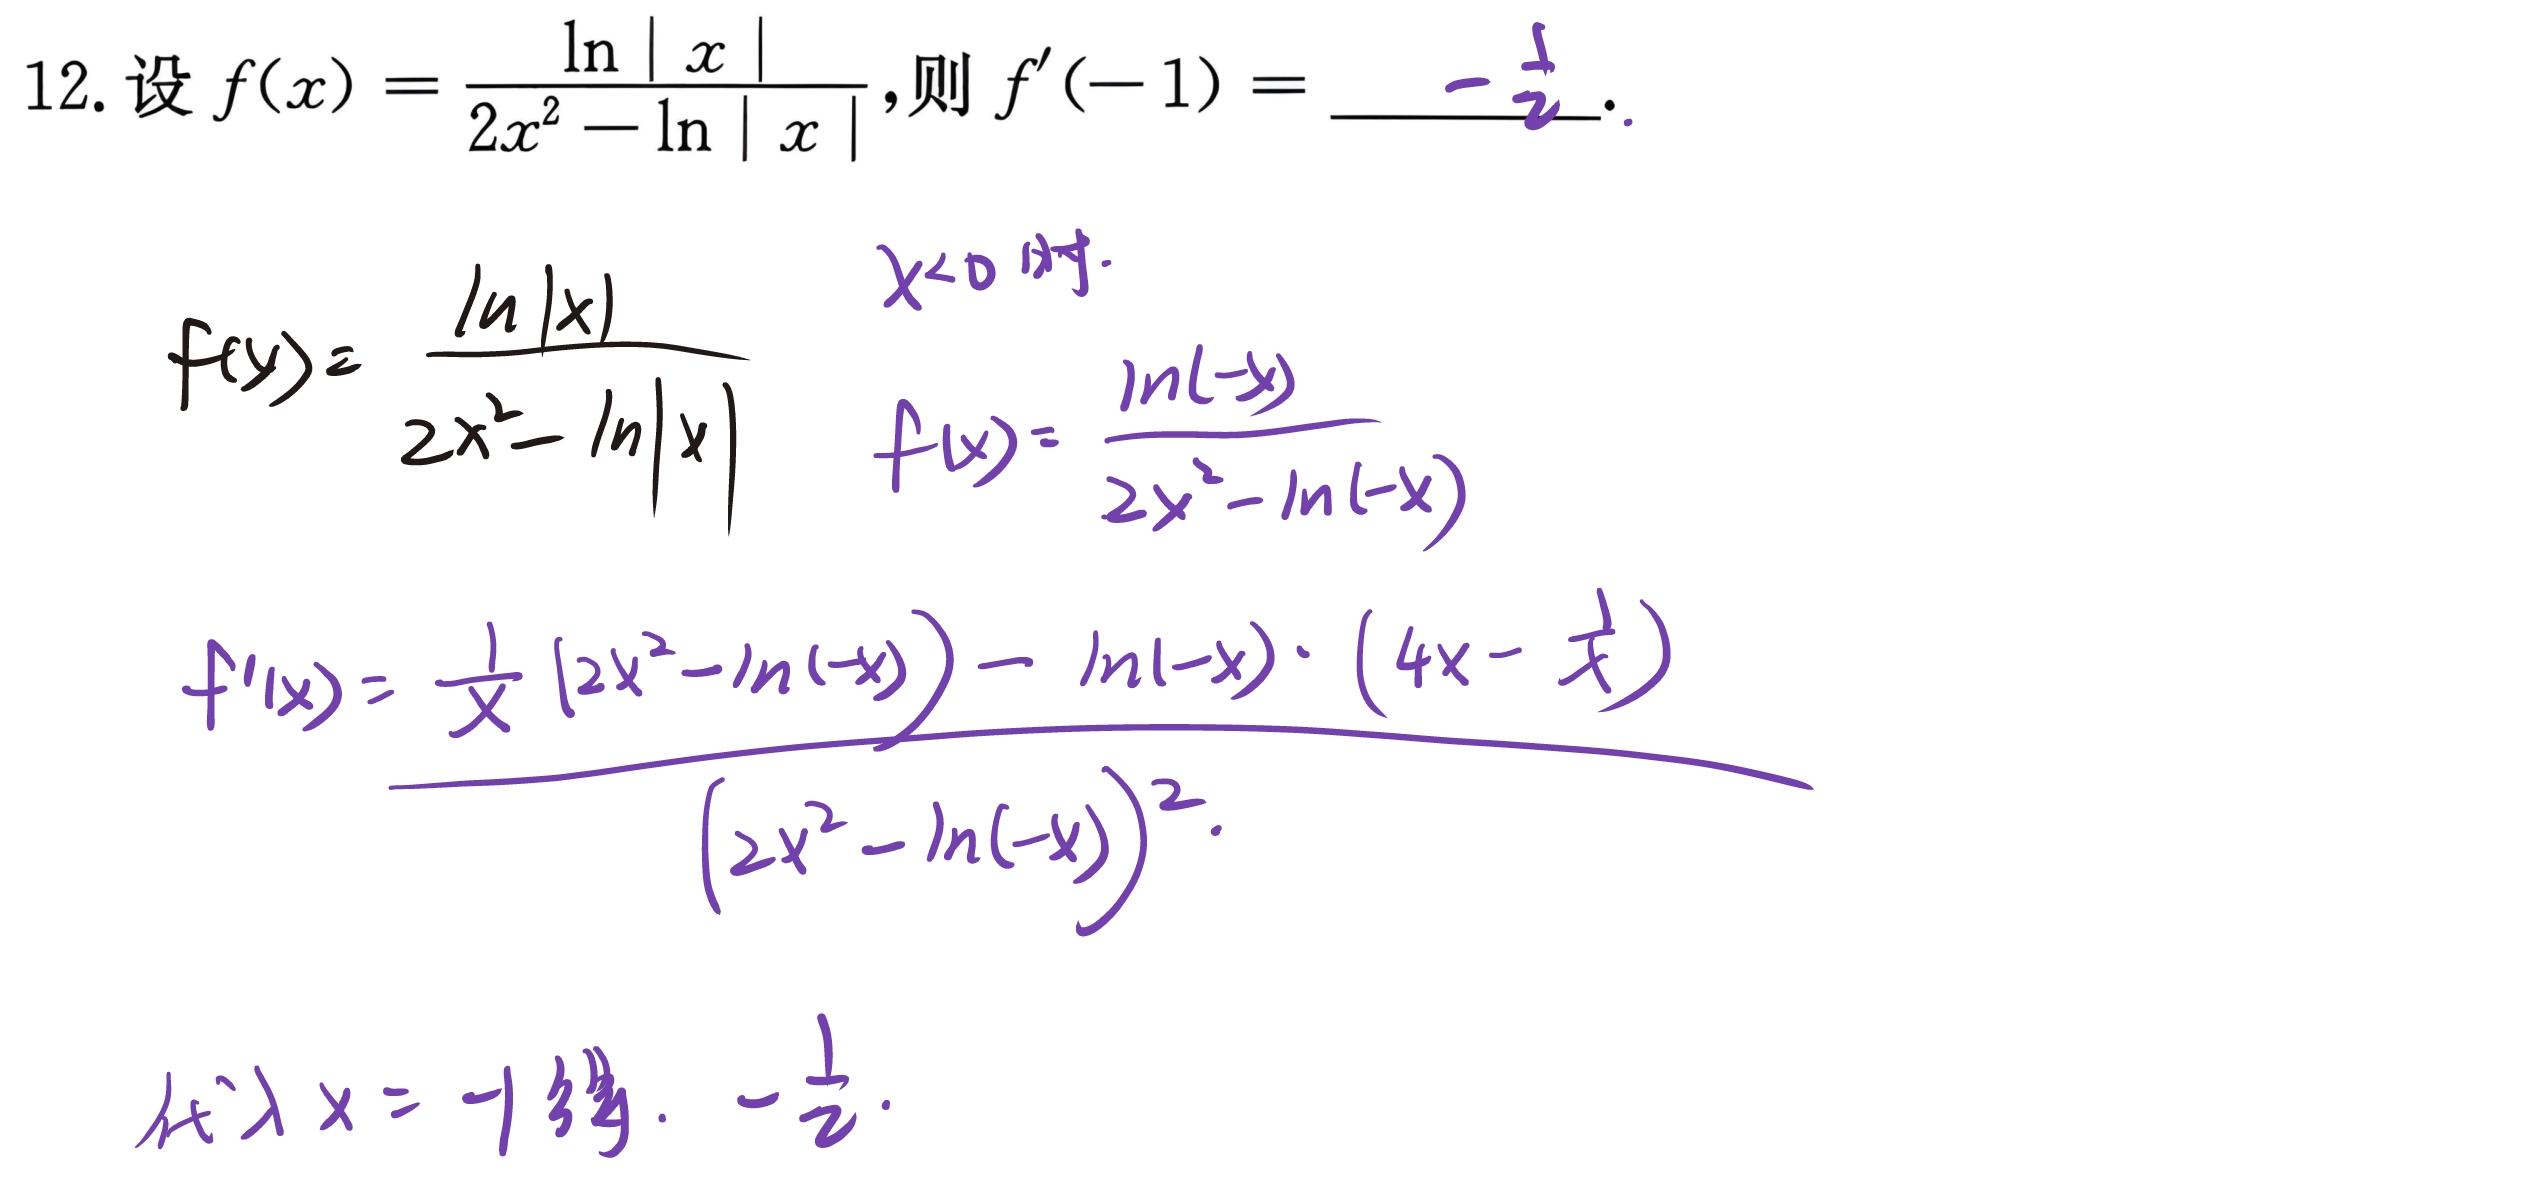 12. 设 f(x) = \frac{\ln|x|}{2x^2 - \ln|x|}, 则 f'(-1) = -\frac{1}{2}.
f(x) = \frac{\ln|x|}{2x^2 - \ln|x|}
x<0 时.
f(x) = \frac{\ln(-x)}{2x^2 - \ln(-x)}
f'(x) = \frac{\frac{1}{x}(2x^2 - \ln(-x)) - \ln(-x) \cdot (4x - \frac{1}{x})}{(2x^2 - \ln(-x))^2}.
代入 x = -1 得. -\frac{1}{2}.